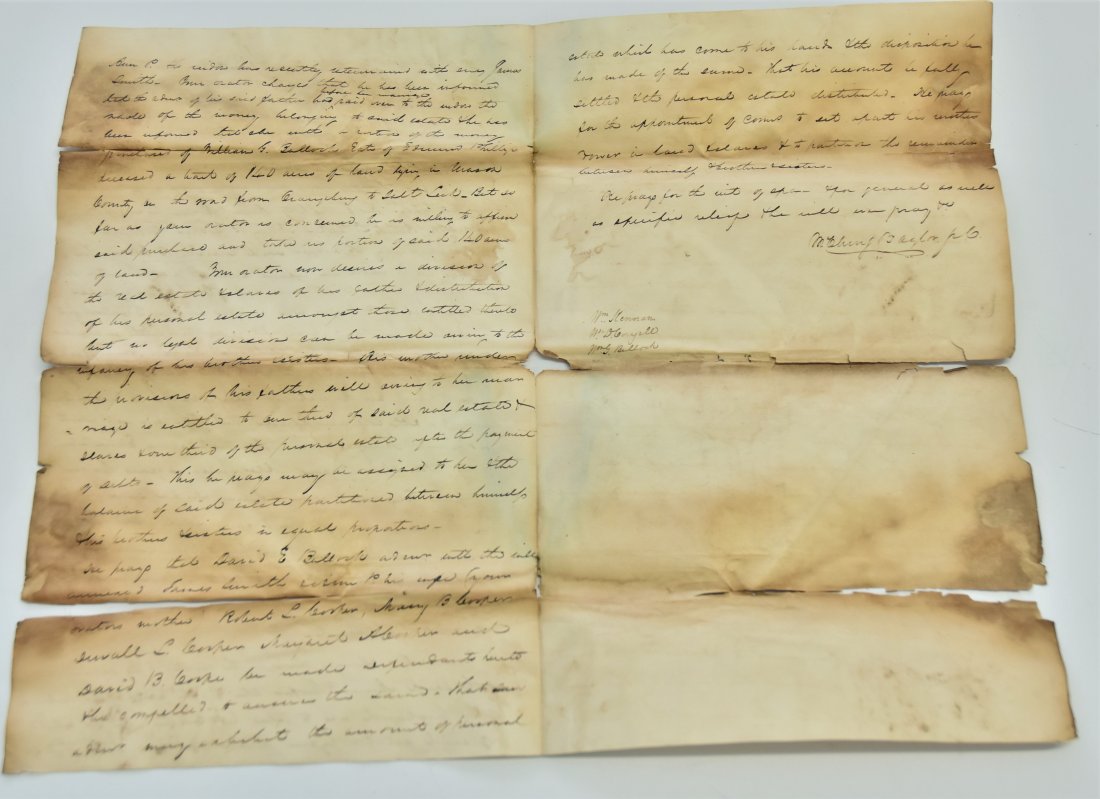 his widow has recently intermarried with one James
Smith. Your orator charges that he has been informed
before her marriage
that the admr of his said father had paid over to the widow the
of the money belonging to said estate & he has
been informed that she with a portion of the money
purchased of William G. Bullock Extr of Edmund Phillips
deceased a tract of 140 acres of land lying in Mason
County on the road from to Salt Lick. But so
far as your orator is concerned he is willing to affirm
said purchase and take no portion of said 140 acres
of land. Your orator now desires a division of
the real estate & slaves of his father & distribution
of his personal estate amongst those entitled thereto
but no legal division can be made owing to the
infancy of his brothers & sisters. His mother under
the provisions of his fathers will owing to her mar
riage is entitled to one third of said real estate &
slaves & one third of the personal estate after the payment
of debts. This he prays may be assigned to her & the
balance of said estate partitioned between himself
& his brothers & sisters in equal proportions.
He prays that David E Bullock admr with the will
annexed James Smith & his wife (your
orators mother Robert L. Cooper, Mary B Cooper
Duvall L. Cooper Margaret A Cooper and
David B. Cooper be made defendants hereto
& be compelled to answer the same. That
admr may exhibit the amount of personal
estate which has come to his hands & the disposition he
has made of the same. That his account be fully
settled & the personal estate distributed. He prays
for the appointment of Comrs to set apart his mothers
dower in land & slaves & to partition the remainder
between himself & brothers & sisters.
He prays for the writ of spa & for general as well
as specific relief & he will ever pray &
McClung & Taylor p. q.
Wm Kennan
Wm
Wm G. Bullock